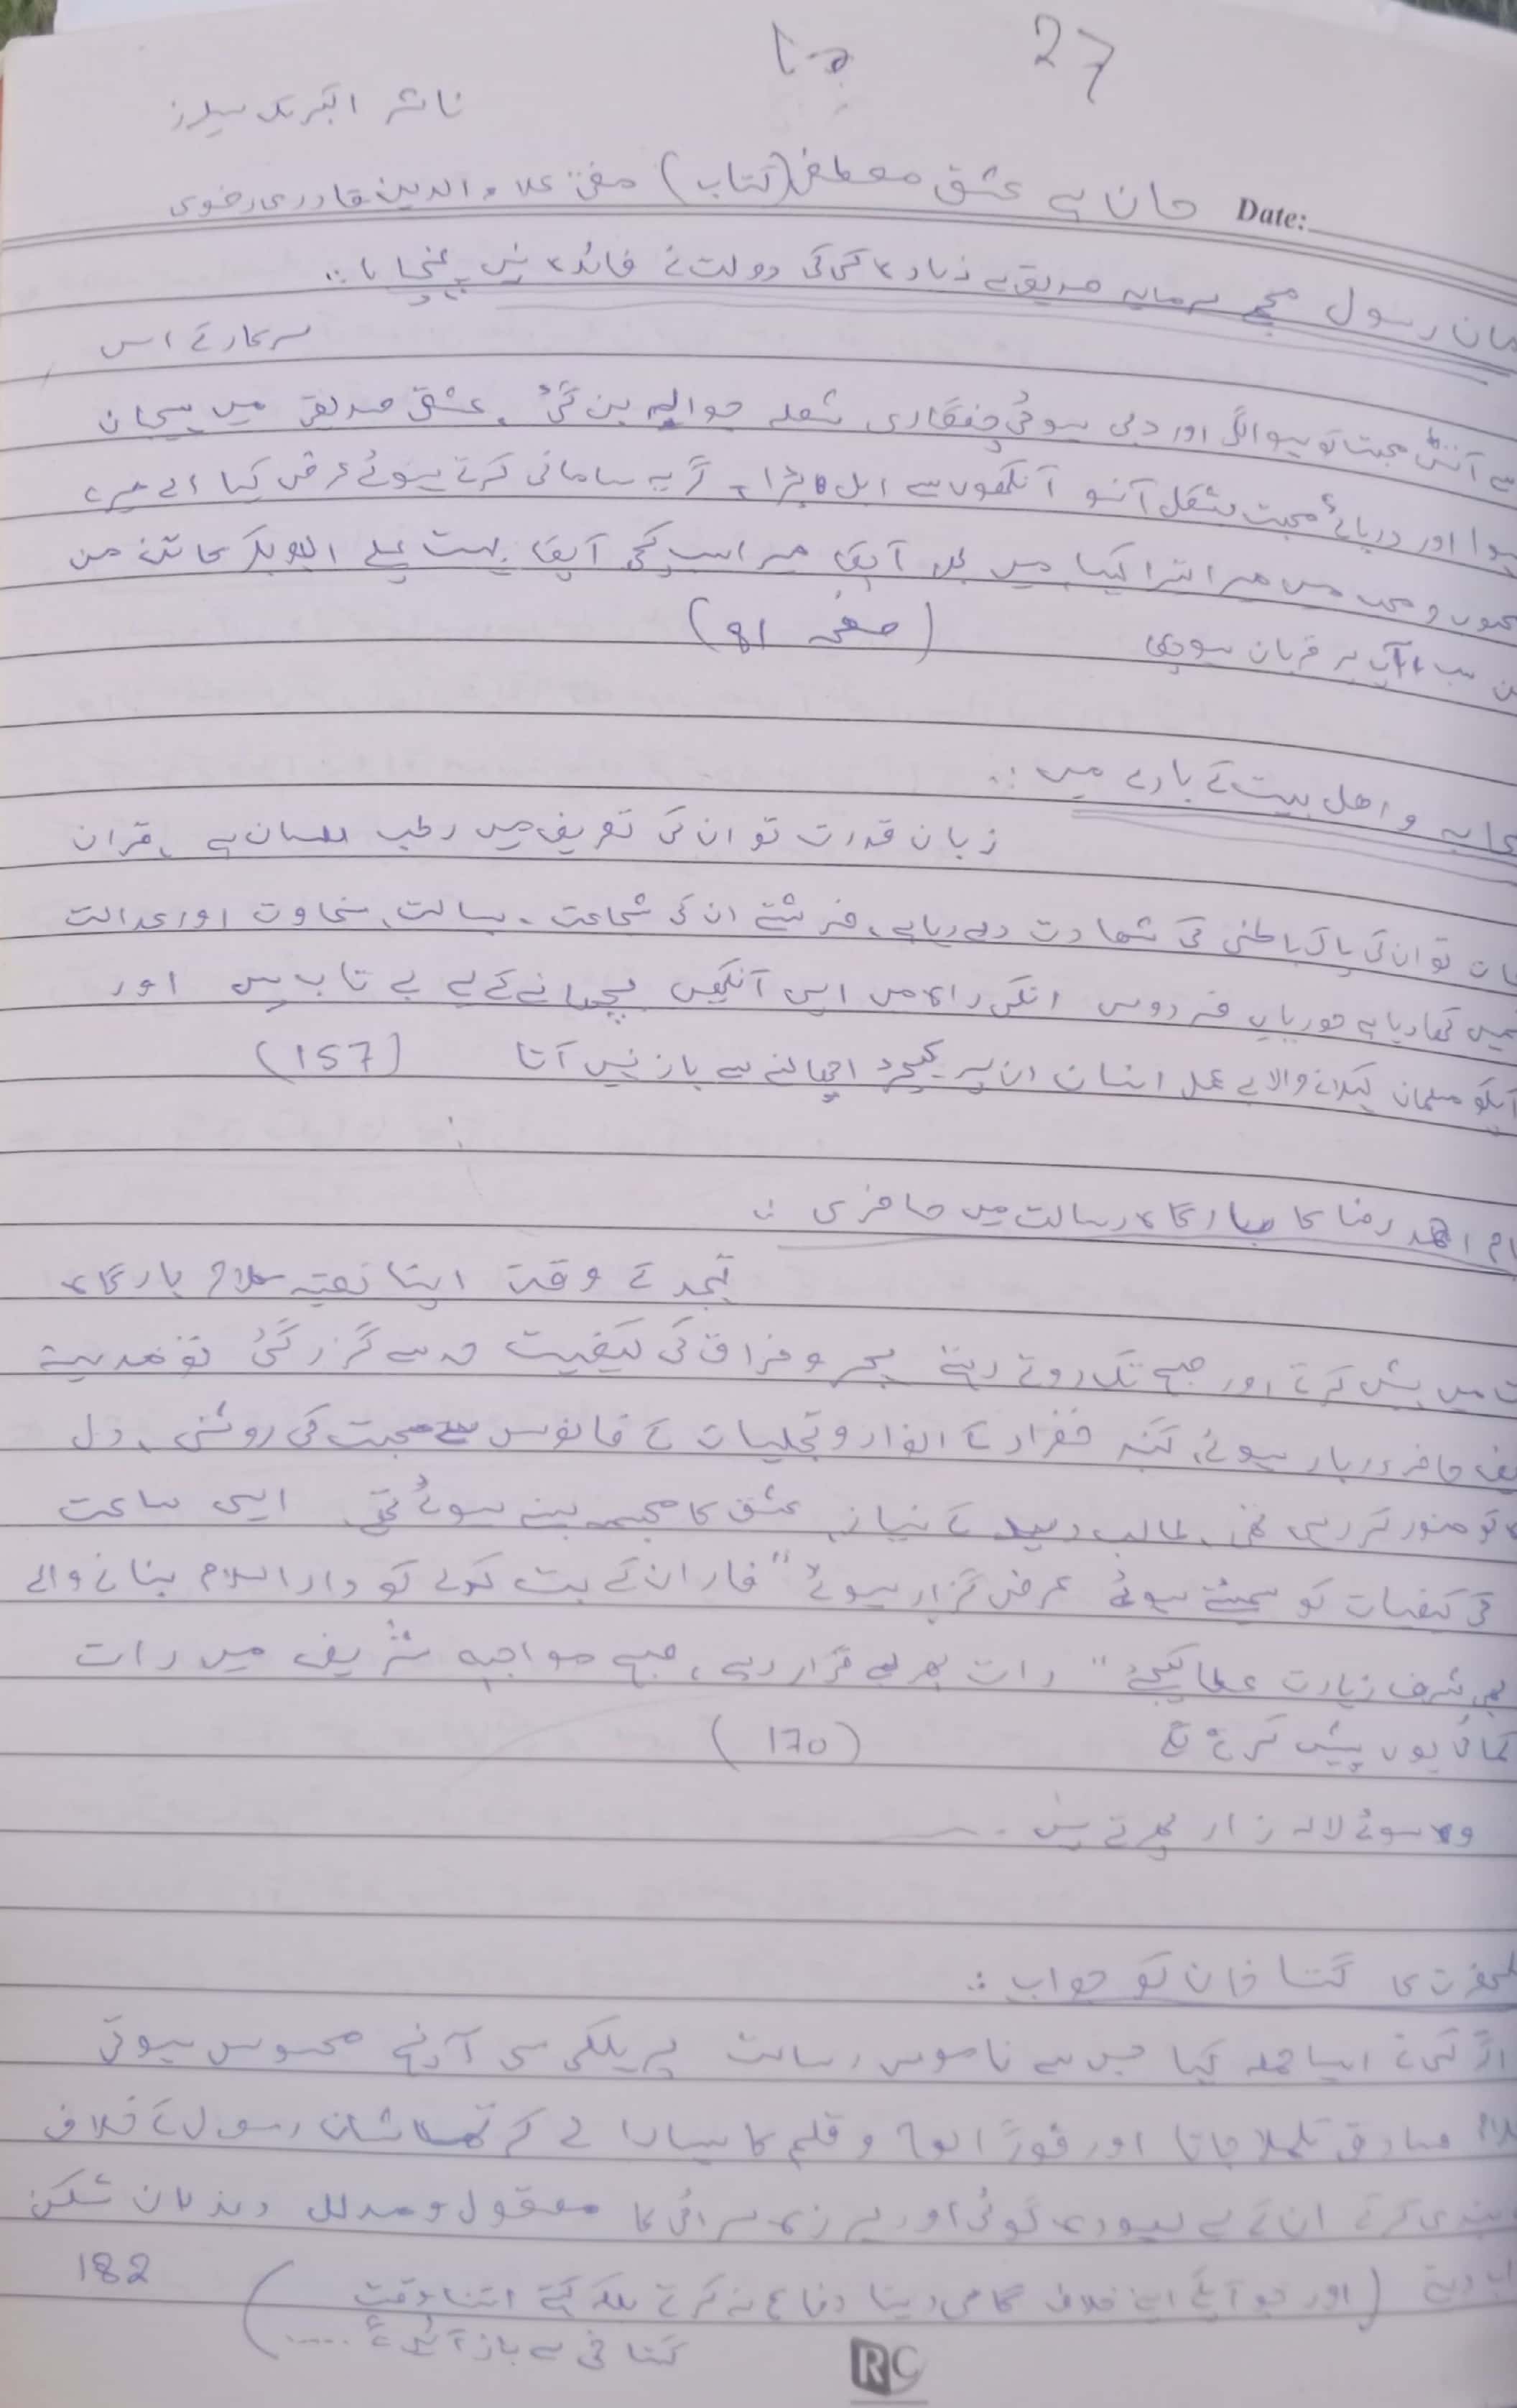 27
ناشر اکبر بک سیلرز
جان ہے عشق مصطفیٰ (کتاب) مفتی علاء الدین قادری رضوی
Date:
رسول مجھے سرمایہ صدیق سے زیادہ کسی کی دولت نے فائدہ نہیں پہنچایا :.
سرکار نے اس
سے آتش محبت کو ہوا لگی اور دبی ہوئی چنگاری شعلہ جوالہ بن گئی، عشق صدیق میں ہیجان
ہوا اور دریائے محبت بشکل آنسو آنکھوں سے ابل پڑا۔ گریہ سامانی کرتے ہوئے عرض کیا اے میرے
میں میرا تیرا کیا، میں بھی آپکا میرا سب کچھ آپکا پہلے ابوبکر کا تن من
سب آپ پر قربان ہو چکا (صفحہ 81)
و اھل بیت کے بارے میں :.
زبان قدرت تو ان کی تعریف میں رطب اللسان ہے، قرآن
تو ان کی پاک باطنی کی شھادت دے رہا ہے، فرشتے ان کی شجاعت، بسالت، سخاوت اور عدالت
کھا رہا ہے حوریان فردوس انکی راہ میں اپنی آنکھیں بچھانے کے لیے بے تاب ہیں اور
آپکو مسلمان کہلانے والا بے عمل انسان ان پر کیچڑ اچھالنے سے باز نہیں آتا (157)
احمد رضا کا بارگاہ رسالت میں حاضری :.
تہجد کے وقت اپنا نعتیہ کلام بارگاہ
میں پیش کرتے اور صبح تک روتے رہتے ہجر و فراق کی کیفیت حد سے گزر گئی تو مدینہ
حاضر دربار ہوئے، گنبد خضراء کے انوار و تجلیات کے فانوس سے محبت کی روشنی، دل
کو منور کر رہی تھی، طالب دید کے نیاز، عشق کا مجسمہ بنے ہوئے تھے، ایسی ساعت
کی کیفیات کو سمیٹے ہوئے عرض گزار ہوئے "فاران کے بت کدے کو دار السلام بنانے والے
شرف زیارت عطا کیجئے" رات بھر بے قرار رہے، صبح مواجہہ شریف میں رات
کمائی یوں پیش کرتے ہیں (170)
وہ سوئے لالہ زار پھرتے ہیں ۔۔
گستاخان کو جواب :.
اگر کسی نے ایسا حملہ کیا جس سے ناموس رسالت پر ہلکی سی آنچ محسوس ہوتی
صادق تلملا جاتا اور فوراً لوح و قلم کا سہارا لے کر شان رسول کے خلاف
بندی کرتے ان کے بے ہودہ گوئی اور ہرزہ سرائی کا معقول و مدلل دندان شکن
دیتے (اور جو آپکے اپنے خلاف گالی دیتا دفاع نہ کرتے بلکہ کہتے اتنا وقت
گستاخی سے باز آئیں گے ....) 182
RC